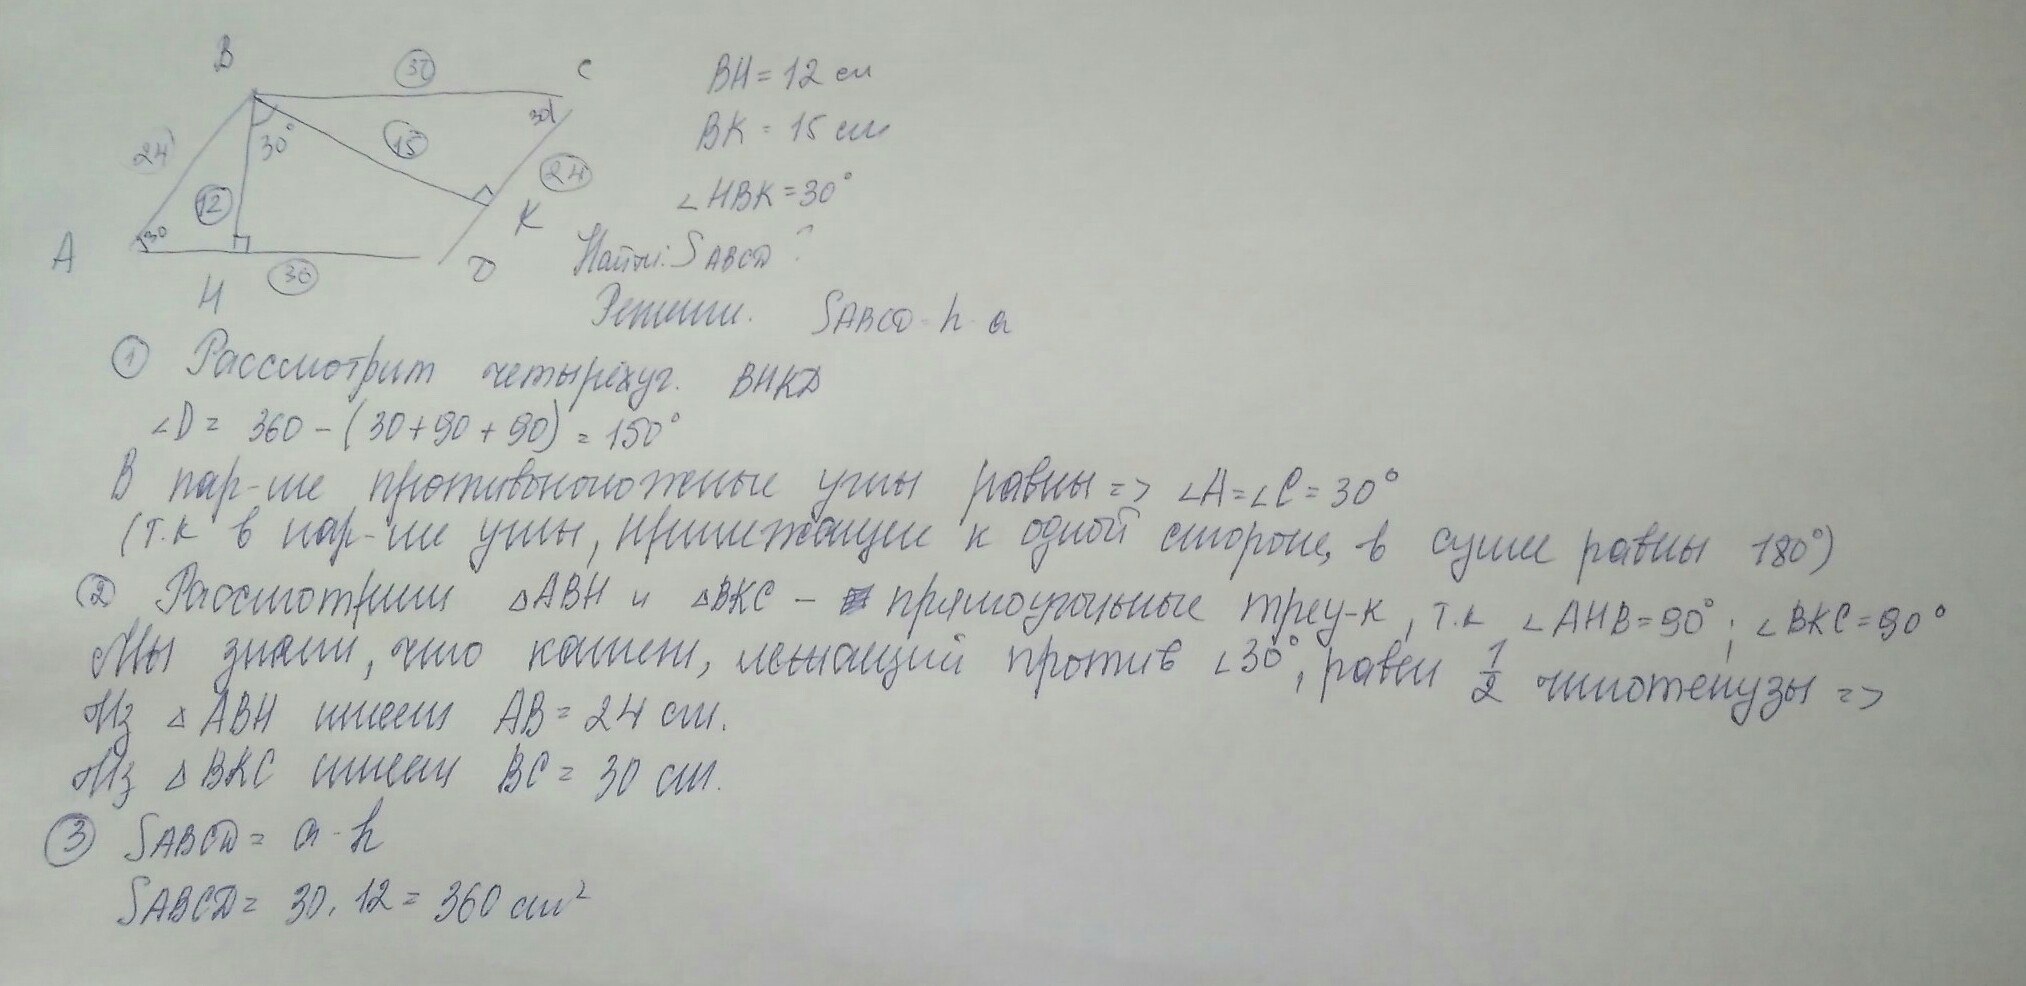 B
30
C
24
30°
15
30
24
12
30
A
H
30
D
K
BH = 12 см
BK = 15 см
∠HBK = 30°
Найти: SABCD ?
Решени. SABCD = h · a
① Рассмотрим четырёхуг. BHKD
∠D = 360 - (30+90+90) = 150°
В пар-ме противоположные углы равны => ∠A = ∠C = 30°
(т.к в пар-ме углы, прилежащие к одной стороне, в сумме равны 180°)
② Рассмотрим △ABH и △BKC - прямоугольные треу-к, т.к ∠AHB = 90°; ∠BKC = 90°
Мы знаем, что катет, лежащий против ∠30°, равен 1/2 гипотенузы =>
Из △ABH имеем AB = 24 см.
Из △BKC имеем BC = 30 см.
③ SABCD = a · h
SABCD = 30 · 12 = 360 см²